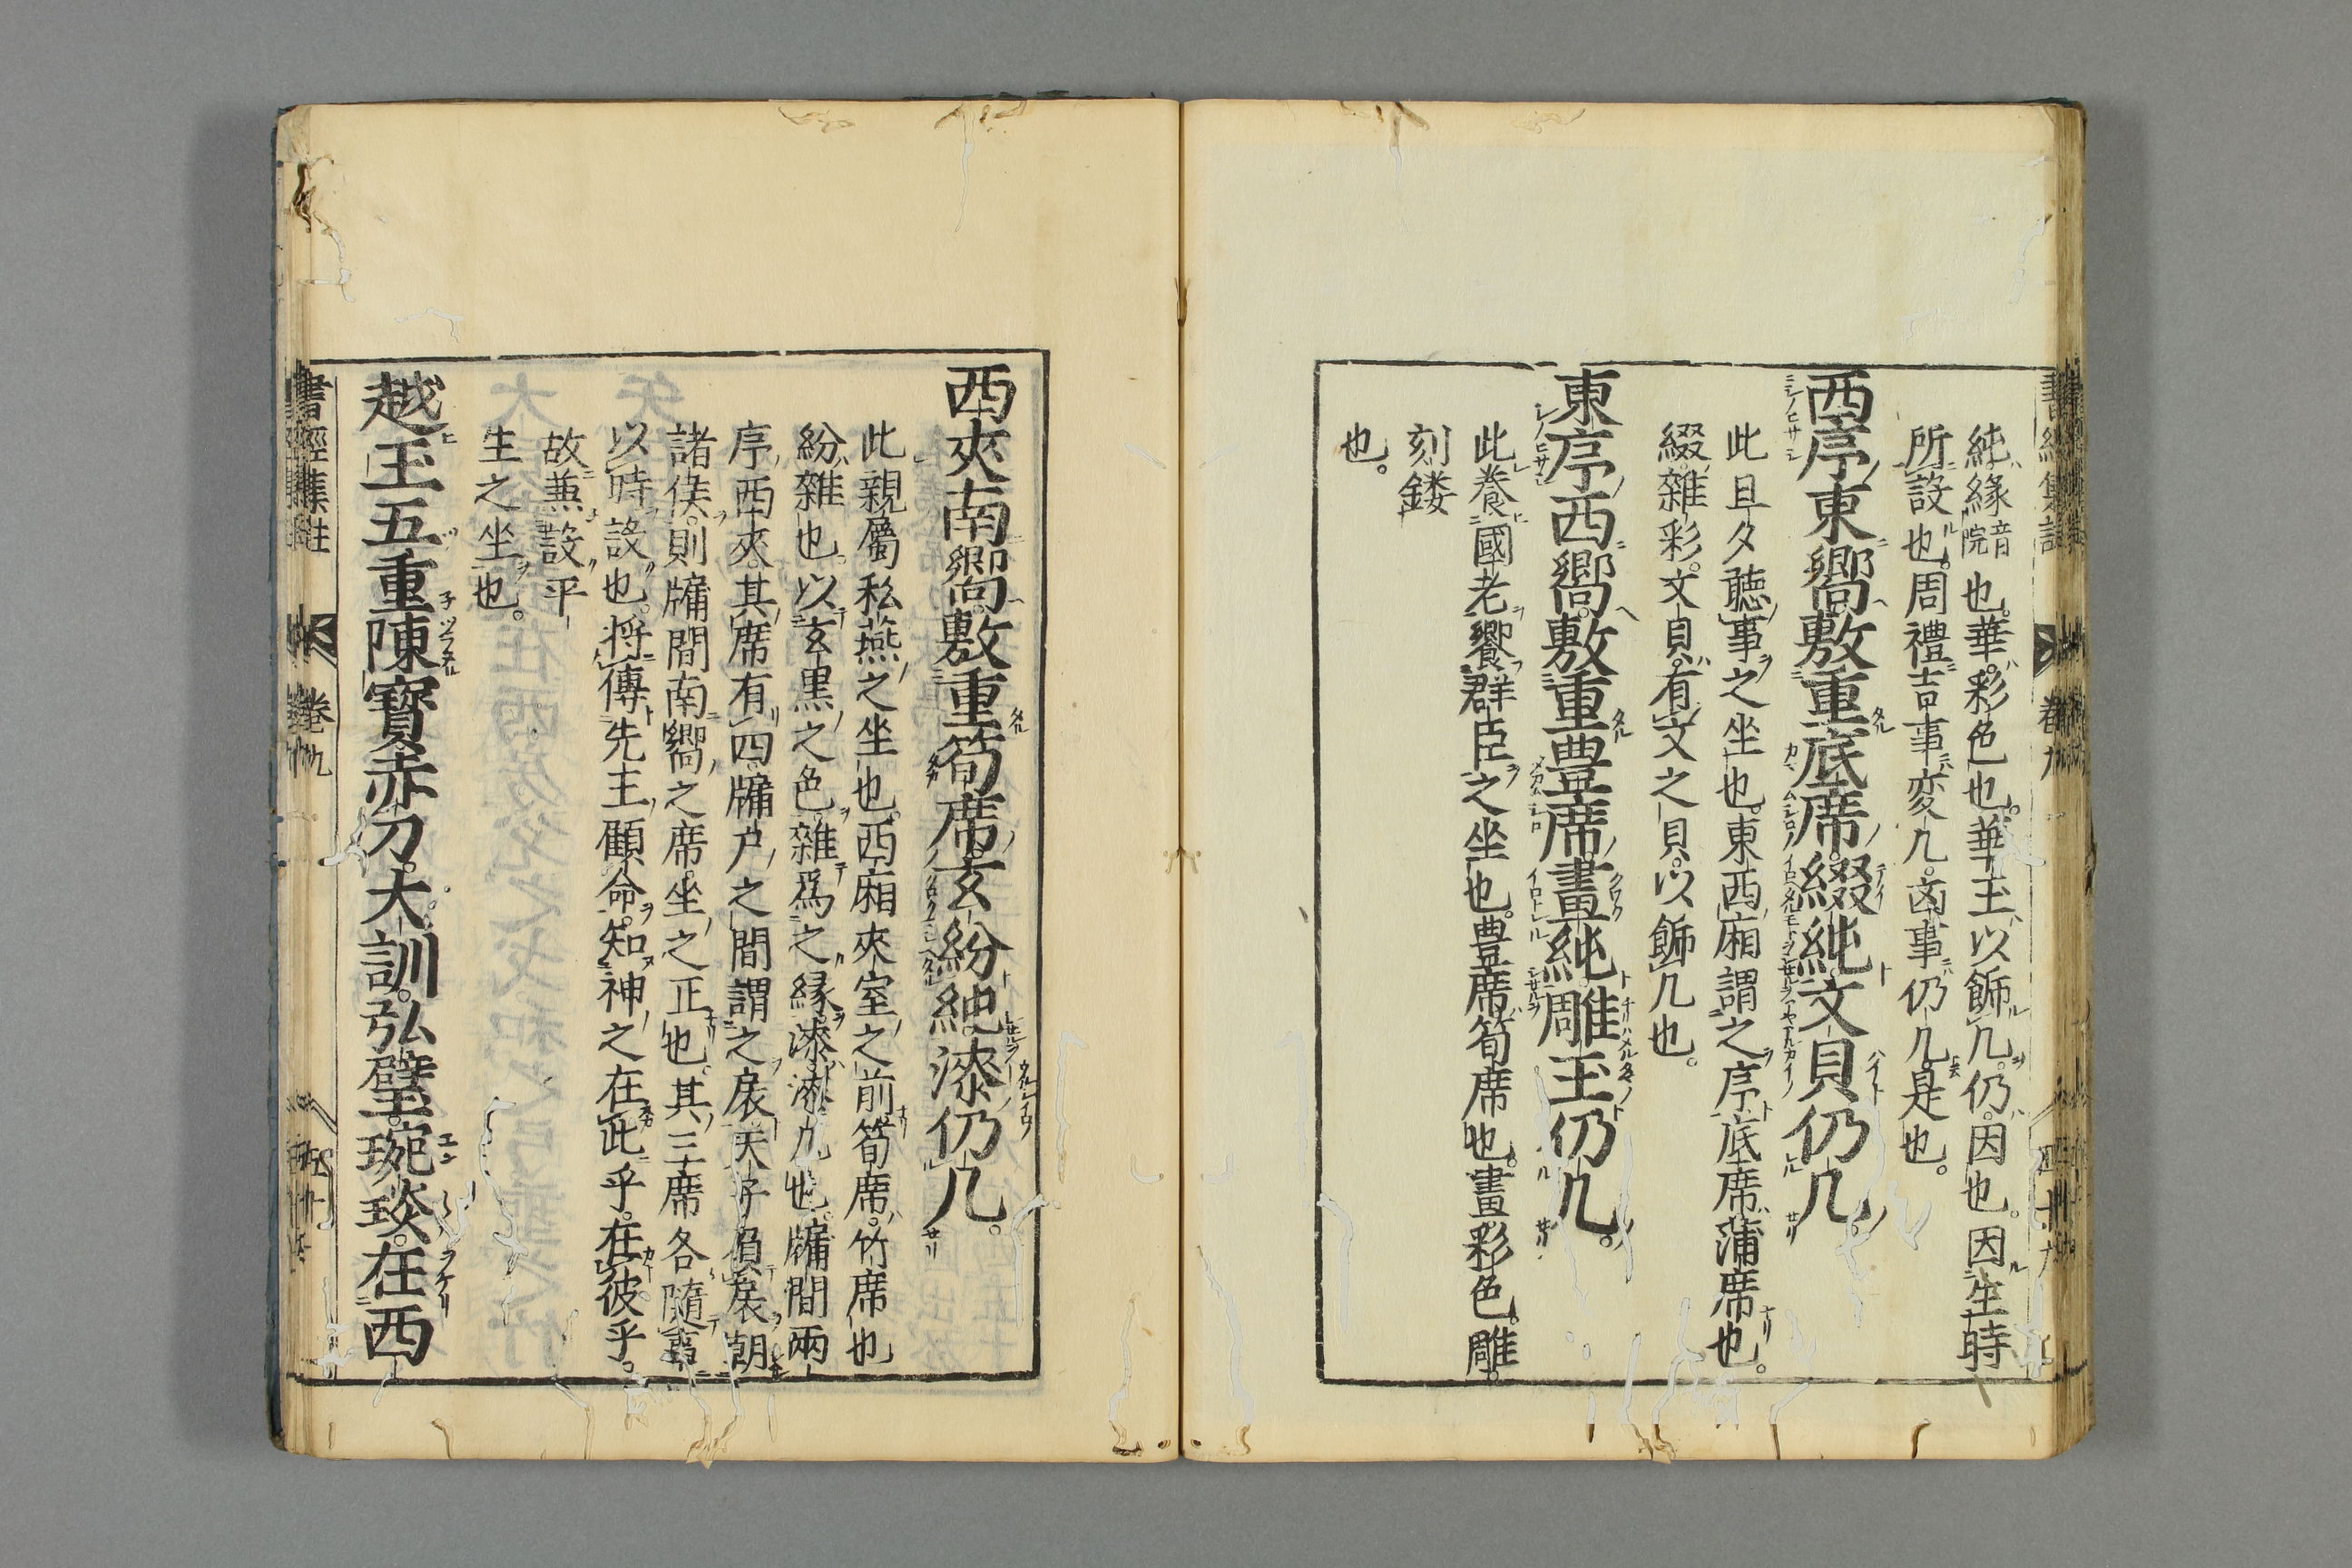 純緣音院也。華。彩色也。華玉以飾几。仍。因也。因生時
所設也。周禮吉事変几。凶事仍几是也。
西序東嚮敷重底席。綴純。文貝仍几。
此旦夕聽事之坐也。東西廂謂之序。底席。蒲席也。
綴。雜彩。文貝。有文之貝。以飾几也。
東序西嚮。敷重豊席。畫純。雕玉仍几。
此養國老饗群臣之坐也。豊席。筍席也。畫。彩色。雕。
刻鏤
也。
西夾南嚮。敷重筍席。玄紛純。漆仍几。
此親屬私燕之坐也。西廂夾室之前。筍席。竹席也
紛。雜也。以玄黒之色。雜爲之緣。漆。漆几也。牖間兩
序。西夾。其席有四。牖戸之間謂之扆。天子負扆朝
諸侯。則牖間南嚮之席。坐之正也。其三席各隨事
以時設也。将傳先王顧命。知神之在此乎。在彼乎。
故兼設平
生之坐也。
越玉五重。陳寶。赤刀。大訓。弘璧。琬琰。在西
書經集註 卷九